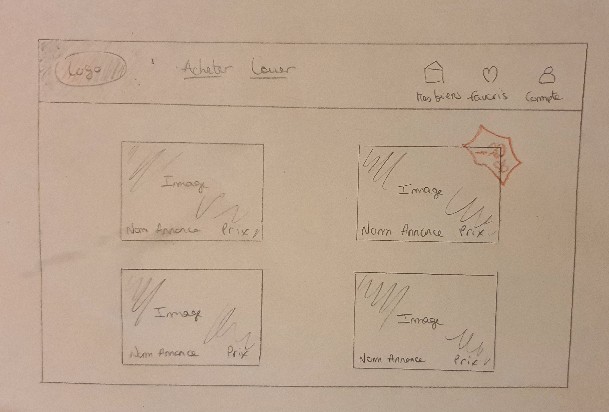 Logo Acheter Louer
Mes biens Favoris Compte
Image
Nom Annonce Prix
Image
Nom Annonce Prix
Image
Nom Annonce Prix
Image
Nom Annonce Prix